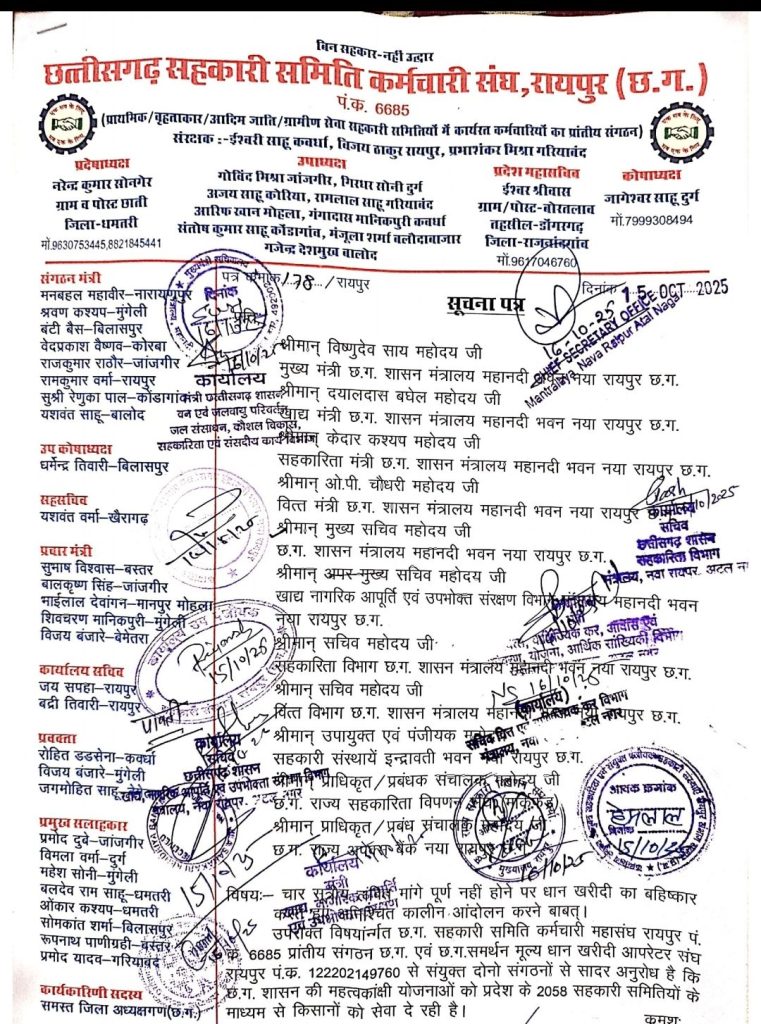 बिन सहकार-नही उद्धार
छत्तीसगढ़ सहकारी समिति कर्मचारी संघ,रायपुर (छ.ग.)
पं.क. 6685
(प्राथमिक/वृहताकार/आदिम जाति/ग्रामीण सेवा सहकारी समितियों में कार्यरत कर्मचारियों का प्रांतीय संगठन)
संरक्षक :-ईश्वरी साहू कवर्धा, विजय ठाकुर रायपुर, प्रभाशंकर मिश्रा गरियाबंद
प्रदेषाध्यक्ष
नरेन्द्र कुमार सोनगेर
ग्राम व पोस्ट छाती
जिला-धमतरी
मों.9630753445,8821845441
उपाध्यक्ष
गोविंद मिश्रा जांजगीर, गिरधर सोनी दुर्ग
अजय साहू कोरिया, रामलाल साहू गरियाबंद
आरिफ खान मोहला, गंगादास मानिकपुरी कवर्धा
संतोष कुमार साहू कोंडागांव, मंजूला शर्मा बलौदाबाजार
गजेन्द्र देशमुख बालोद
प्रदेश महासचिव
ईश्वर श्रीवास
ग्राम/पोस्ट-बोरतलाव
तहसील-डोंगरगढ़
जिला-राजनांदगांव
मों.9617046760
कोषाध्यक्ष
जागेश्वर साहू दुर्ग
मों.7999308494
पत्र क्रमांक 178 /रायपुर
दिनांक 15 OCT 2025
सूचना पत्र
16-10-25
CHIEF SECRETARY OFFICE
Mantralaya, Nava Raipur Atal Nagar
संगठन मंत्री
मनबहल महावीर-नारायणपुर
श्रवण कश्यप-मुंगेली
बंटी बैस-बिलासपुर
वेदप्रकाश वैष्णव-कोरबा
राजकुमार राठौर-जांजगीर
रामकुमार वर्मा-रायपुर
सुश्री रेणुका पाल-कोंडागांव
यशवंत साहू-बालोद
उप कोषाध्यक्ष
धर्मेन्द्र तिवारी-बिलासपुर
सहसचिव
यशवंत वर्मा-खैरागढ़
प्रचार मंत्री
सुभाष विश्वास-बस्तर
बालकृष्ण सिंह-जांजगीर
माईलाल देवांगन-मानपुर मोहला
शिवचरण मानिकपुरी-मुंगेली
विजय बंजारे-बेमेतरा
कार्यालय सचिव
जय सपहा-रायपुर
बद्री तिवारी-रायपुर
प्रवक्ता
रोहित डडसेना-कवर्धा
विजय बंजारे-मुंगेली
जगमोहित साहू
प्रमुख सलाहकार
प्रमोद दुबे-जांजगीर
विमला वर्मा-दुर्ग
महेश सोनी-मुंगेली
बलदेव राम साहू-धमतरी
ओंकार कश्यप-धमतरी
सोमकांत शर्मा-बिलासपुर
रूपनाथ पाणीग्रही-बस्तर
प्रमोद यादव-गरियाबंद
कार्यकारिणी सदस्य
समस्त जिला अध्यक्षगण(छ.ग.)
श्रीमान् विष्णुदेव साय महोदय जी
मुख्य मंत्री छ.ग. शासन मंत्रालय महानदी भवन नया रायपुर छ.ग.
श्रीमान् दयालदास बघेल महोदय जी
खाद्य मंत्री छ.ग. शासन मंत्रालय महानदी भवन नया रायपुर छ.ग.
श्रीमान् केदार कश्यप महोदय जी
सहकारिता मंत्री छ.ग. शासन मंत्रालय महानदी भवन नया रायपुर छ.ग.
श्रीमान् ओ.पी. चौधरी महोदय जी
वित्त मंत्री छ.ग. शासन मंत्रालय महानदी भवन नया रायपुर
श्रीमान् मुख्य सचिव महोदय जी
छ.ग. शासन मंत्रालय महानदी भवन नया रायपुर छ.ग.
श्रीमान् अपर मुख्य सचिव महोदय जी
खाद्य नागरिक आपूर्ति एवं उपभोक्त संरक्षण विभाग मंत्रालय महानदी भवन
नया रायपुर छ.ग.
श्रीमान् सचिव महोदय जी
सहकारिता विभाग छ.ग. शासन मंत्रालय महानदी भवन नया रायपुर छ.ग.
श्रीमान् सचिव महोदय जी
वित्त विभाग छ.ग. शासन मंत्रालय महानदी रायपुर छ.ग.
श्रीमान् उपायुक्त एवं पंजीयक महोदय
सहकारी संस्थायें इन्द्रावती भवन रायपुर छ.ग.
श्रीमान् प्राधिकृत/प्रबंधक संचालक महोदय जी
छ.ग. राज्य सहकारिता विपणन
श्रीमान् प्राधिकृत/प्रबंध संचालक महोदय जी
छ.ग. राज्य अपेक्स बैंक नया रायपुर
कार्यालय
मंत्री छत्तीसगढ़ शासन
वन एवं जलवायु परिवर्तन,
जल संसाधन, कौशल विकास,
सहकारिता एवं संसदीय कार्य विभाग
कार्यालय
सचिव
छत्तीसगढ़ शासन
सहकारिता विभाग
मंत्रालय, नवा रायपुर, अटल
कार्यालय
सचिव
छत्तीसगढ़ शासन
आवक क्रमांक
हेमलाल
दिनांक 15/10/25
विषय:- चार सूत्रीय लंबित मांगे पूर्ण नहीं होने पर धान खरीदी का बहिष्कार
करते हुए अनिश्चित कालीन आंदोलन करने बाबत्।
उपरोक्त विषयांर्न्गत छ.ग. सहकारी समिति कर्मचारी महासंघ रायपुर पं.
क. 6685 प्रांतीय संगठन छ.ग. एवं छ.ग.समर्थन मूल्य धान खरीदी आपरेटर संघ
रायपुर पं.क. 122202149760 से संयुक्त दोनो संगठनों से सादर अनुरोध है कि
छ.ग. शासन की महत्वकांक्षी योजनाओं को प्रदेश के 2058 सहकारी समितियों के
माध्यम से किसानों को सेवा दे रही है।
क्रमश: